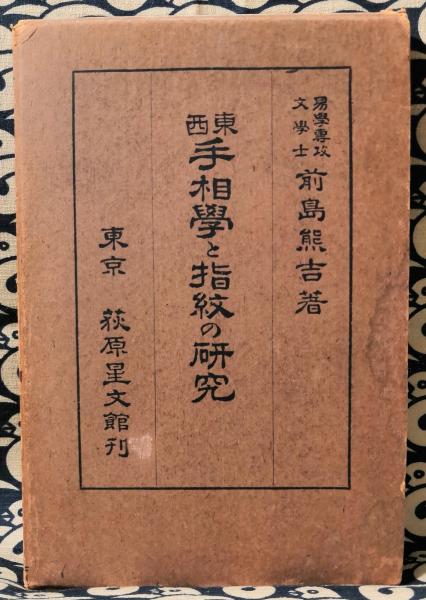 易學專攻
文學士
前島熊吉著
東西
手相學と指紋の研究
東京 荻原星文館刊